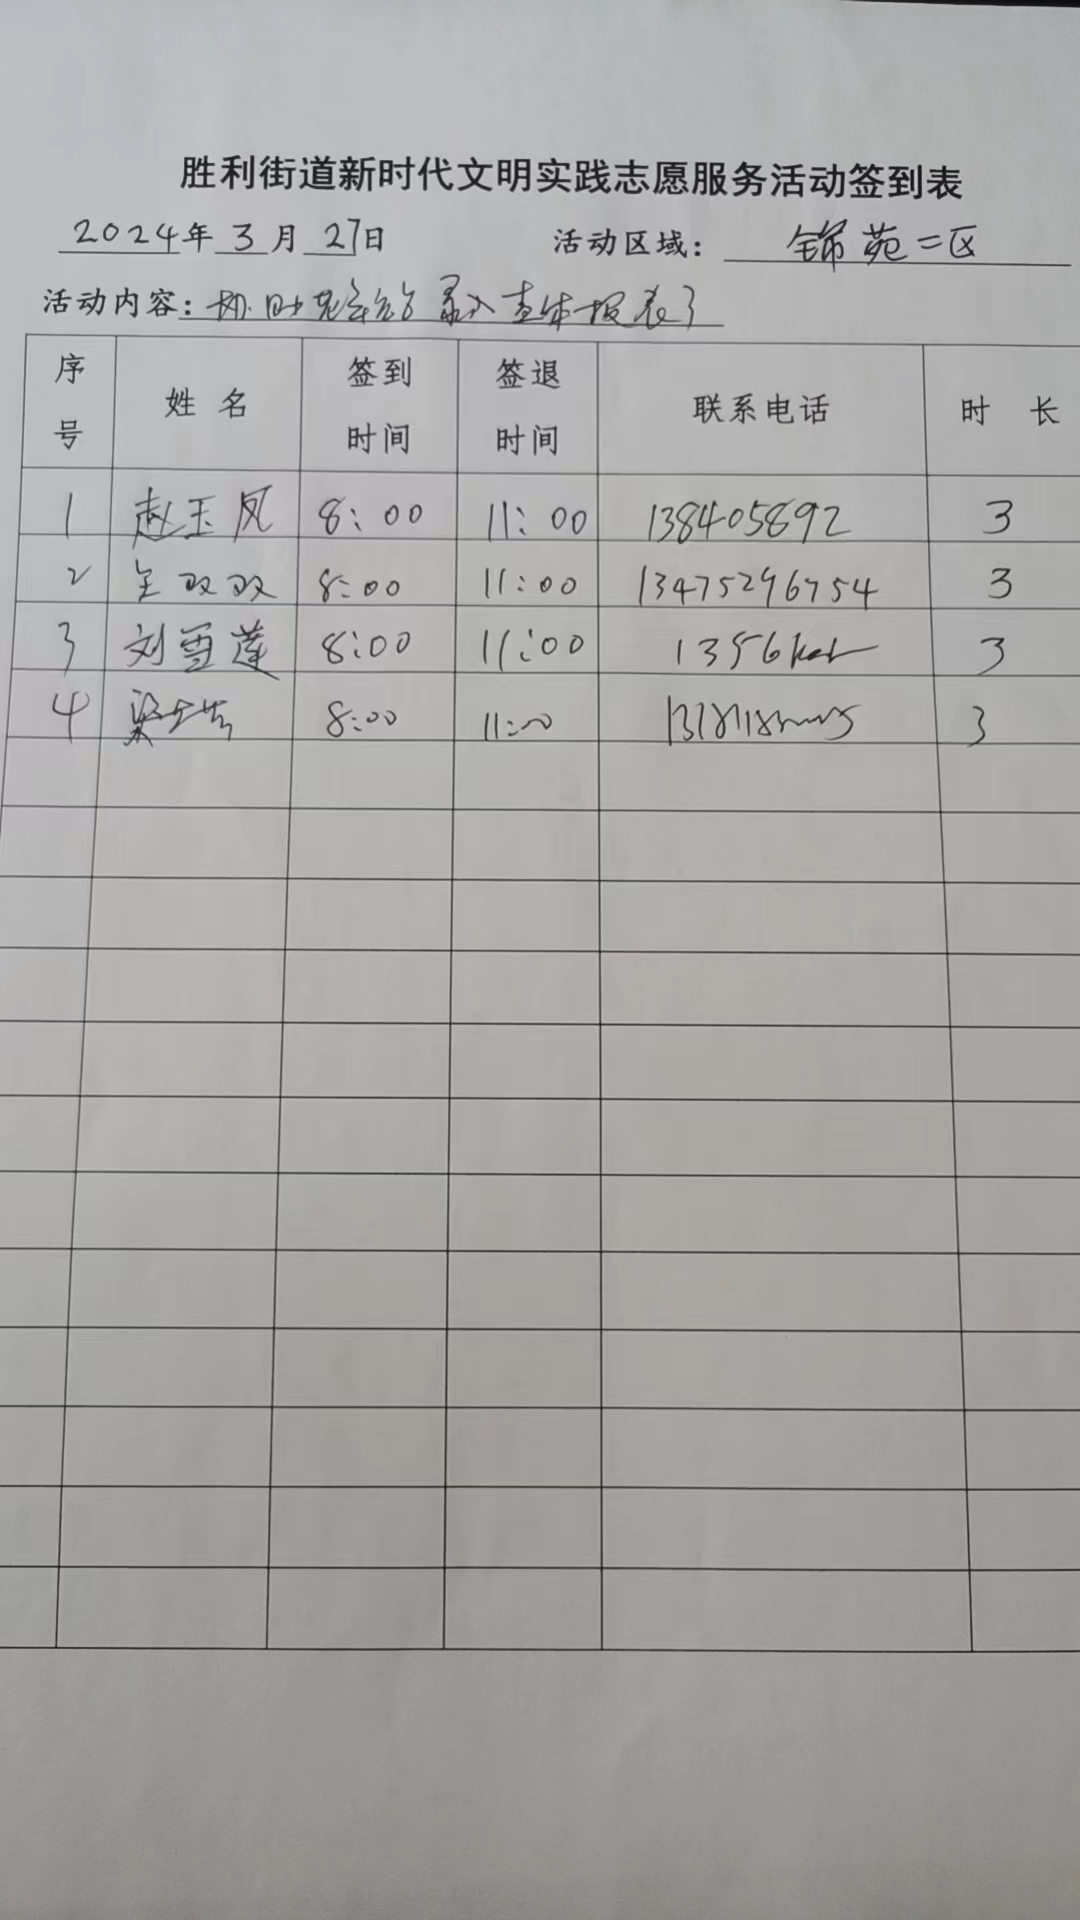 胜利街道新时代文明实践志愿服务活动签到表
2024年 3 月 27日 活动区域: 锦苑二区
活动内容: 录入查体报表
序号 姓名 签到时间 签退时间 联系电话 时长
1 赵玉凤 8:00 11:00 138405892 3
2 双双 8:00 11:00 13475296754 3
3 刘雪莲 8:00 11:00 1356 3
4 梁 8:00 11:00 3